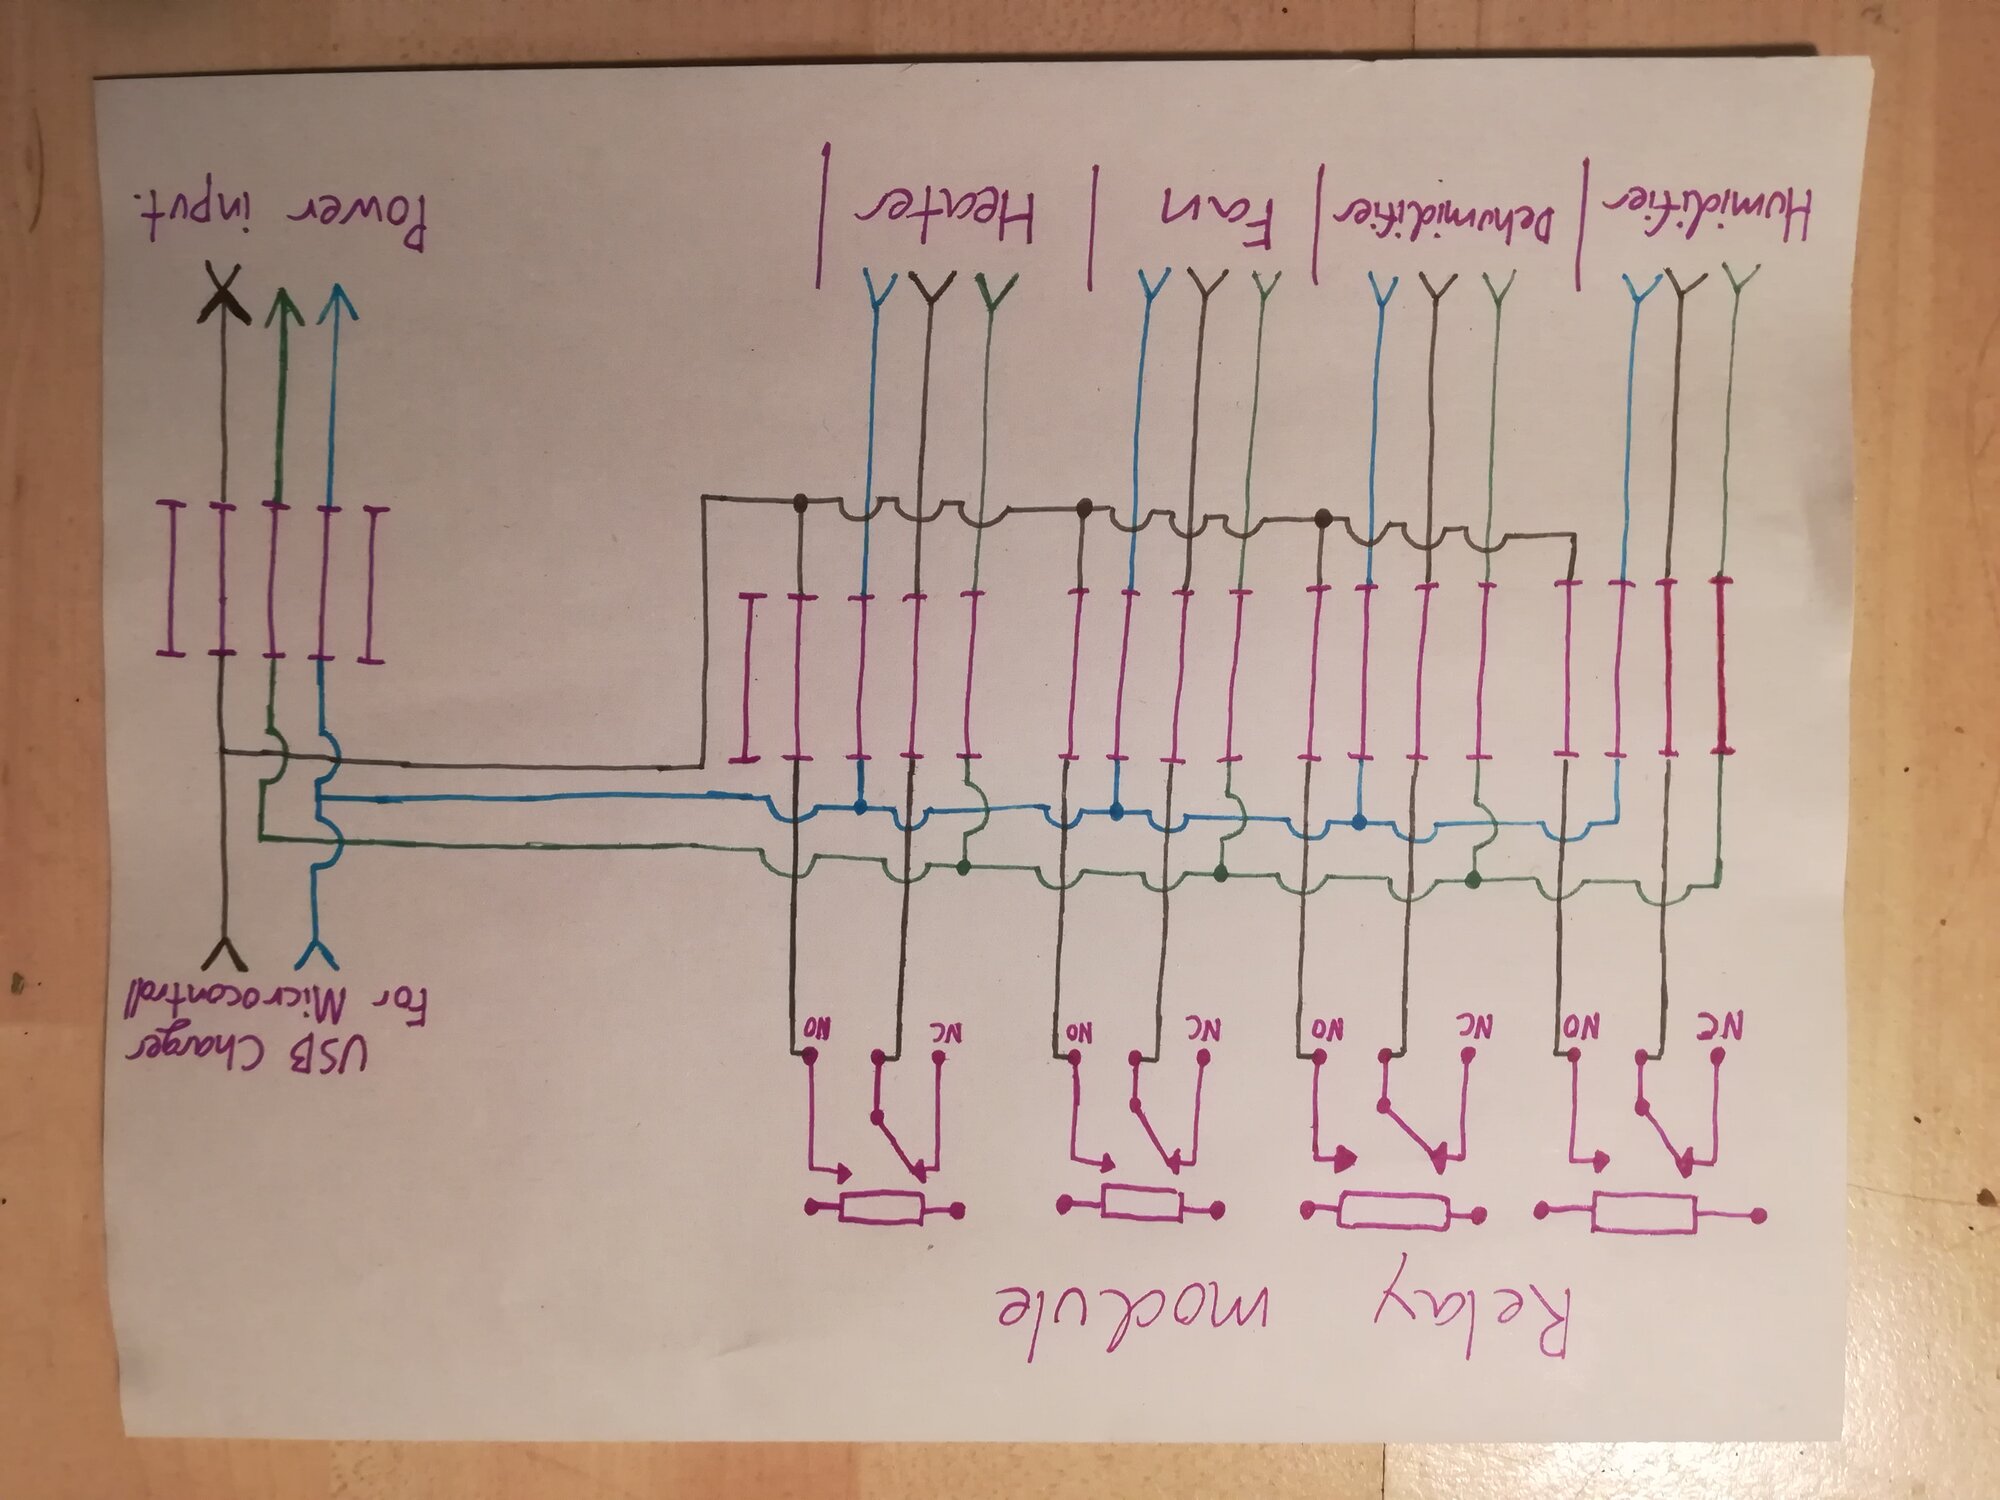 Relay module
NC NO NC NO NC NO NC NO
USB Charger
For Microcontroll
Humidifier | Dehumidifier | Fan | Heater |
Power input.